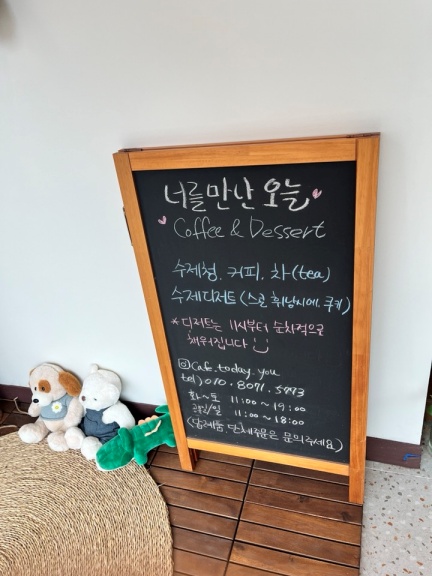 너를 만난 오늘
Coffee & Dessert
수제청. 커피. 차(tea)
수제디저트 (스콘, 휘낭시에, 쿠키)
* 디저트는 11시부터 순차적으로
채워집니다
Cafe.today.you
tel) 010.8071.5993
화~토 11:00~19:00
공휴일/일 11:00~18:00
(답례품, 단체주문은 문의주세요)